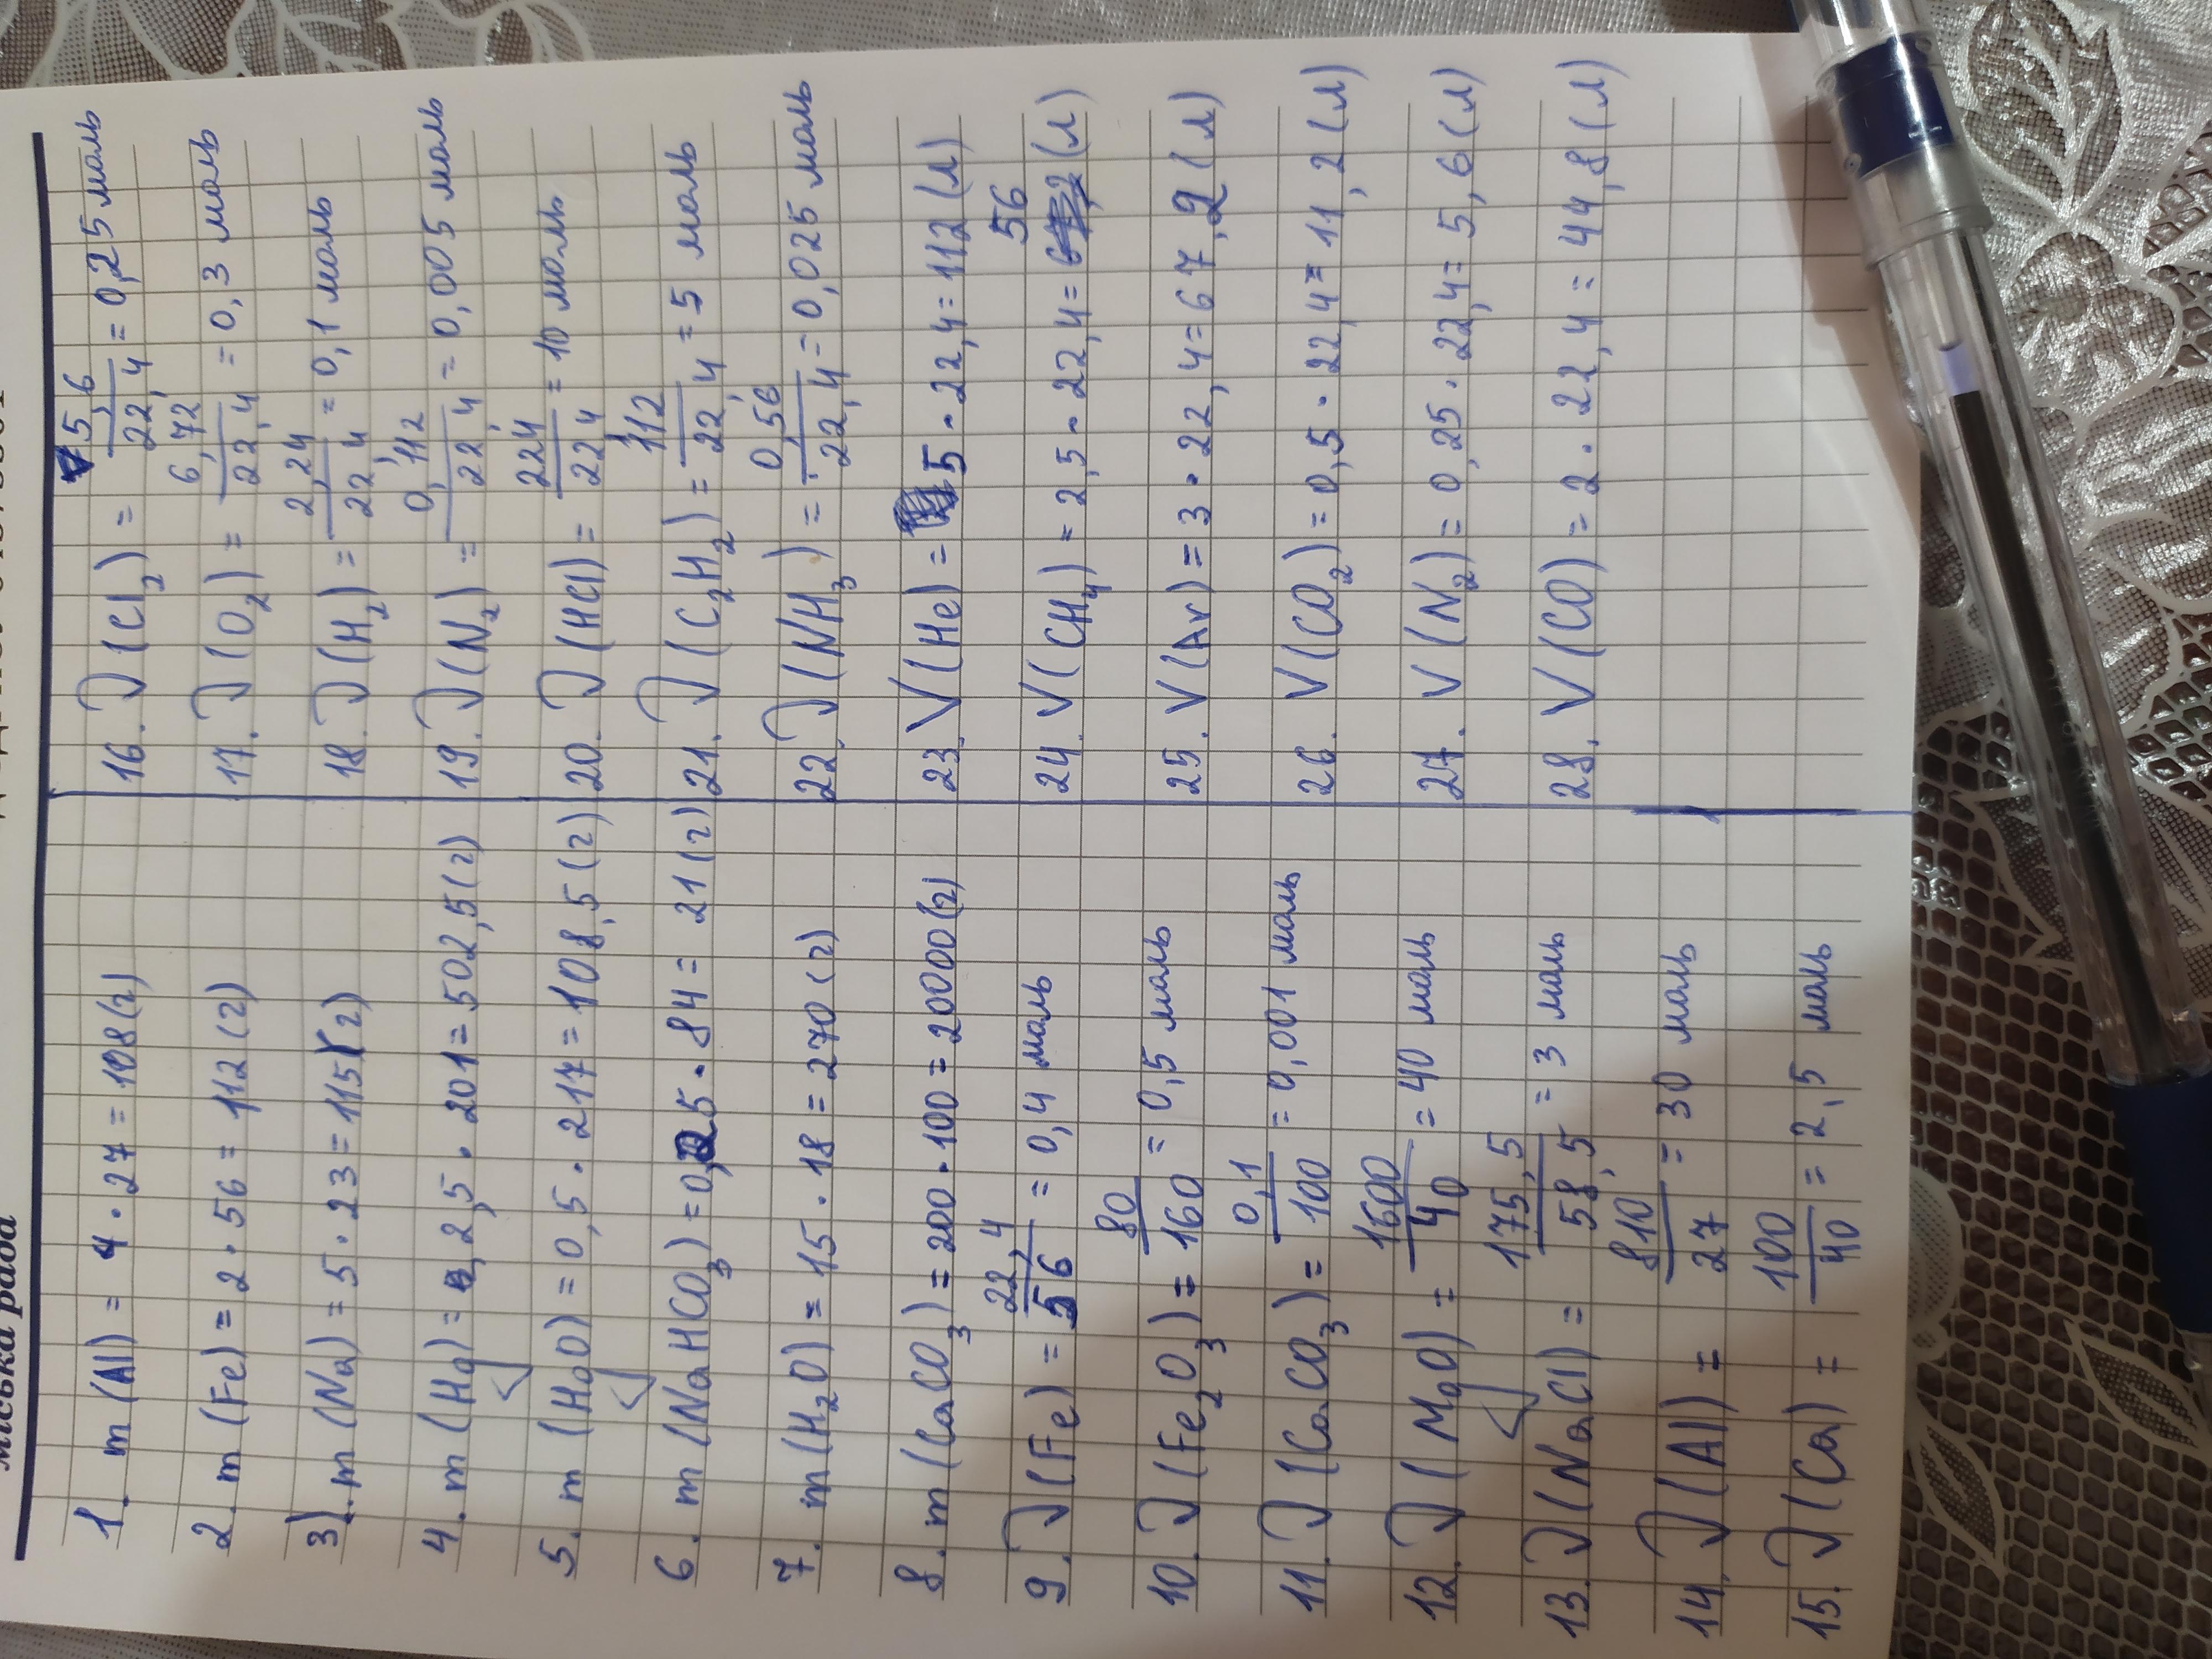 міська рада
1. m (Al) = 4 · 27 = 108 (г)
2. m (Fe) = 2 · 56 = 112 (г)
3). m (Na) = 5 · 23 = 115 (г)
4. m (Hg) = 2,5 · 201 = 502,5 (г)
5. m (HgO) = 0,5 · 217 = 108,5 (г)
6. m (NaHCO3) = 0,25 · 84 = 21 (г)
7. m (H2O) = 15 · 18 = 270 (г)
8. m (CaCO3) = 200 · 100 = 20000 (г)
9. ν (Fe) = 22,4/56 = 0,4 моль
10. ν (Fe2O3) = 80/160 = 0,5 моль
11. ν (CaCO3) = 0,1/100 = 0,001 моль
12. ν (MgO) = 1600/40 = 40 моль
13. ν (NaCl) = 175,5/58,5 = 3 моль
14. ν (Al) = 810/27 = 30 моль
15. ν (Ca) = 100/40 = 2,5 моль
16. ν (Cl2) = 5,6/22,4 = 0,25 моль
17. ν (O2) = 6,72/22,4 = 0,3 моль
18. ν (H2) = 2,24/22,4 = 0,1 моль
19. ν (N2) = 0,112/22,4 = 0,005 моль
20. ν (HCl) = 224/22,4 = 10 моль
21. ν (C2H2) = 112/22,4 = 5 моль
22. ν (NH3) = 0,56/22,4 = 0,025 моль
23. V (He) = 5 · 22,4 = 112 (л)
24. V (CH4) = 2,5 · 22,4 = 56 (л)
25. V (Ar) = 3 · 22,4 = 67,2 (л)
26. V (CO2) = 0,5 · 22,4 = 11,2 (л)
27. V (N2) = 0,25 · 22,4 = 5,6 (л)
28. V (CO) = 2 · 22,4 = 44,8 (л)